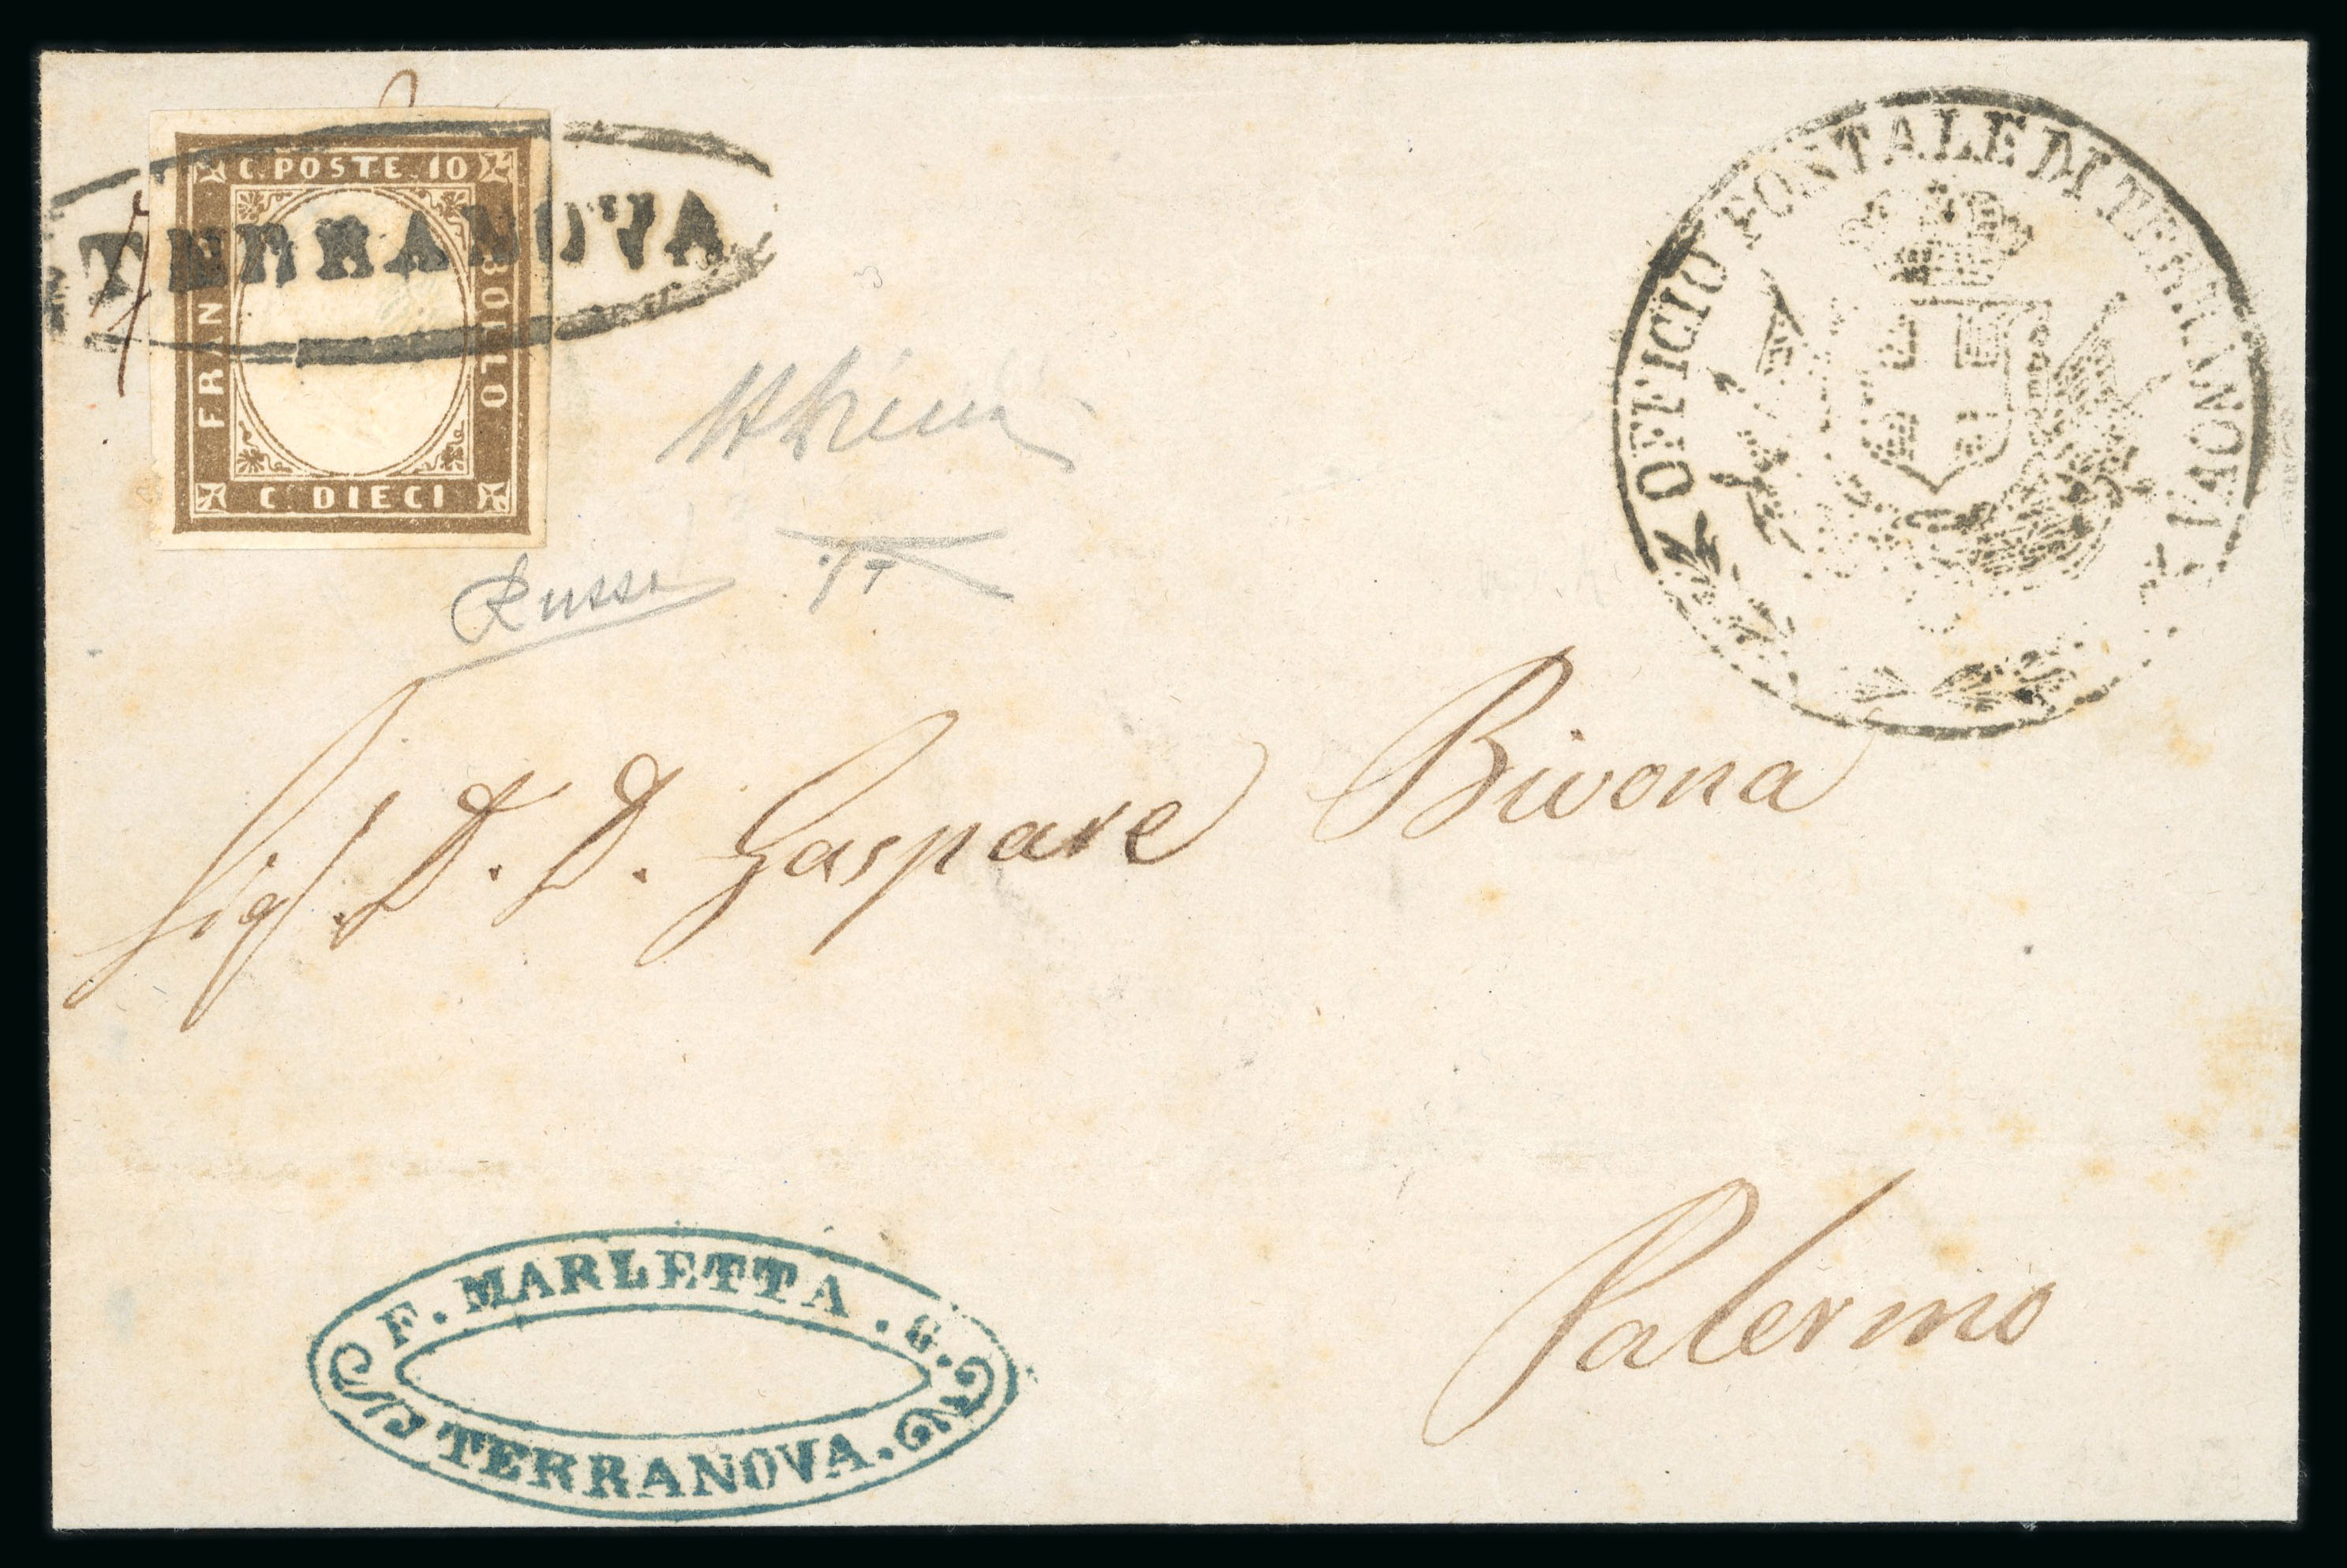 C. POSTE. 10
FRAN
BOLLO
C. DIECI
TERRANOVA
OFFICIO POSTALE DI TERRANOVA
Russo
Sig.r D. D. Gaspare Bivona
Palermo
F. MARLETTA. G.
TERRANOVA.